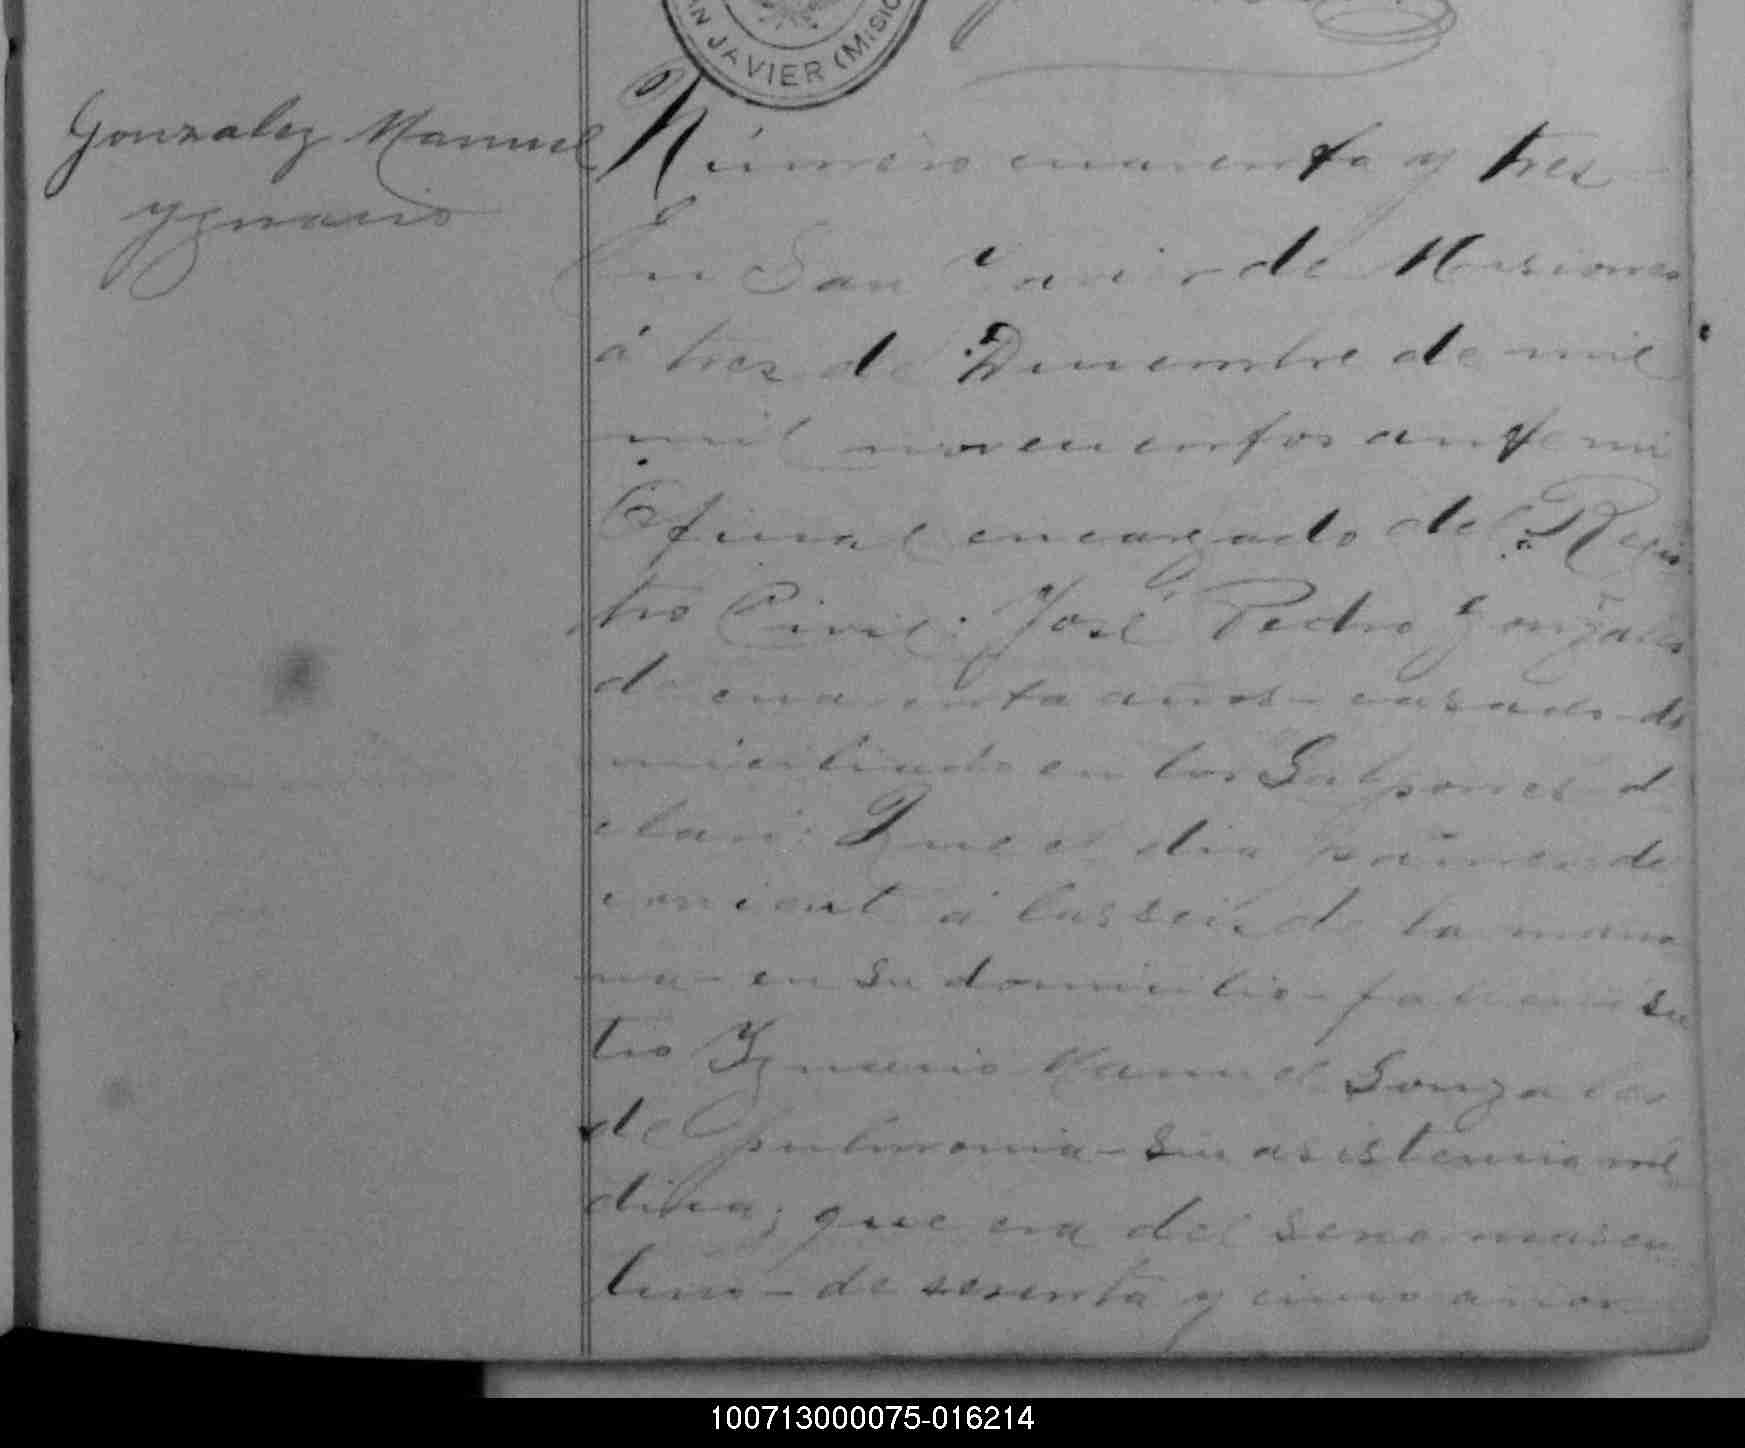 AN JAVIER (MISIO
Gonzalez Manuel
Ygnacio
Número cuarenta y tres
En San Javier de Misiones
á tres de Diciembre de mil
mil novecientos ante mi
Oficial encargado del Regis
tro Civil: José Pedro Gonzales
de cuarenta años - casado - do
miciliado en los Galpones de
claró: Que el dia primero de
corriente á las seis de la maña
na - en su domicilio - falleció su
tio Ygnacio Manuel Gonzales
de pulmonia - sin asistencia mé
dica; que era del sexo mascu
lino - de sesenta y cinco años
100713000075-016214